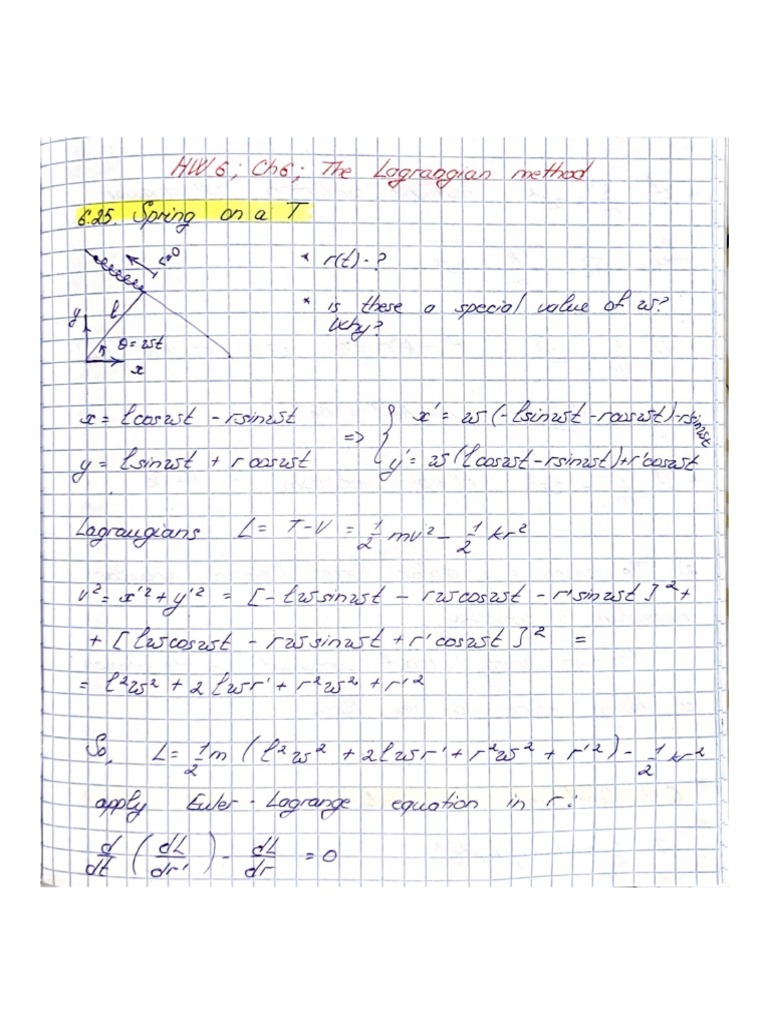 HW 6; Ch6; The Lagrangian method
6.25. Spring on a T
* r(t) - ?
* is these a special value of ω?
Why?
r>0
l
y
θ = ωt
x
x = lcosωt - rsinωt
y = lsinωt + rcosωt
=> { x' = ω(-lsinωt - rcosωt) - r'sinωt
y' = ω(lcosωt - rsinωt) + r'cosωt
Lagrangians L = T-V = 1/2 mv² - 1/2 kr²
v² = x'² + y'² = [-lωsinωt - rωcosωt - r'sinωt]² +
+ [lωcosωt - rωsinωt + r'cosωt]² =
= l²ω² + 2lωr' + r²ω² + r'²
So, L = 1/2 m (l²ω² + 2lωr' + r²ω² + r'²) - 1/2 kr²
apply Euler - Lagrange equation in r:
d/dt (dL/dr') - dL/dr = 0